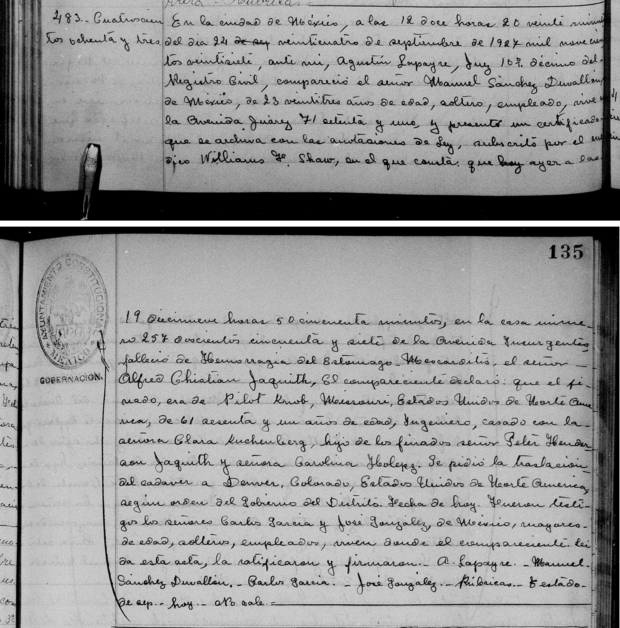 483.- Cuatrocien
tos ochenta y tres
En la ciudad de México, a las 12 doce horas 20 veinte minu
del dia 24 de sep veinticuatro de septiembre de 1927 mil novecien
tos veintisiete, ante mi, Agustin Lapayre, Juez 10º décimo del
Registro Civil, compareció el señor Manuel Sánchez Duvallón
de México, de 23 veintitres años de edad, soltero, empleado, vive
la Avenida Juárez 71 setenta y uno, y presentó un certificado
que se archiva con las anotaciones de Ley, subscrito por el
dico Williams F. Shaw, en el que consta: que hoy ayer a las
135
AYUNTAMIENTO CONSTITUCIONAL
MEXICO
GOBERNACION.
19 diecinueve horas 50 cincuenta minutos, en la casa núme-
ro 257 doscientos cincuenta y siete de la Avenida Insurgentes
falleció de Hemorragia del Estomago. Miocarditis, el señor
Alfred Chistian Jaquith, El compareciente declaró: que el fi-
nado, era de Pilot Knob, Missouri, Estados Unidos de Norte Ame-
rica, de 61 sesenta y un años de edad, Ingeniero, casado con la
señora Clara Kuchenberg, hijo de los finados señor Peter Hender
son Jaquith y señora Carolina Se pidió la traslacion
del cadaver a Denver, Colorado, Estados Unidos de Norte America,
según orden del Gobierno del Distrito Fecha de hoy. Fueron testi-
gos los señores Carlos Garcia y José González, de México, mayores
de edad, solteros, empleados, viven donde el compareciente. Lei
da esta acta, la ratificaron y firmaron.- A. Lapayre.- Manuel
Sánchez Duvallón.- Carlos Garcia.- José González.- Rúbricas.- Testado-
de sep.- hoy.- No vale.-